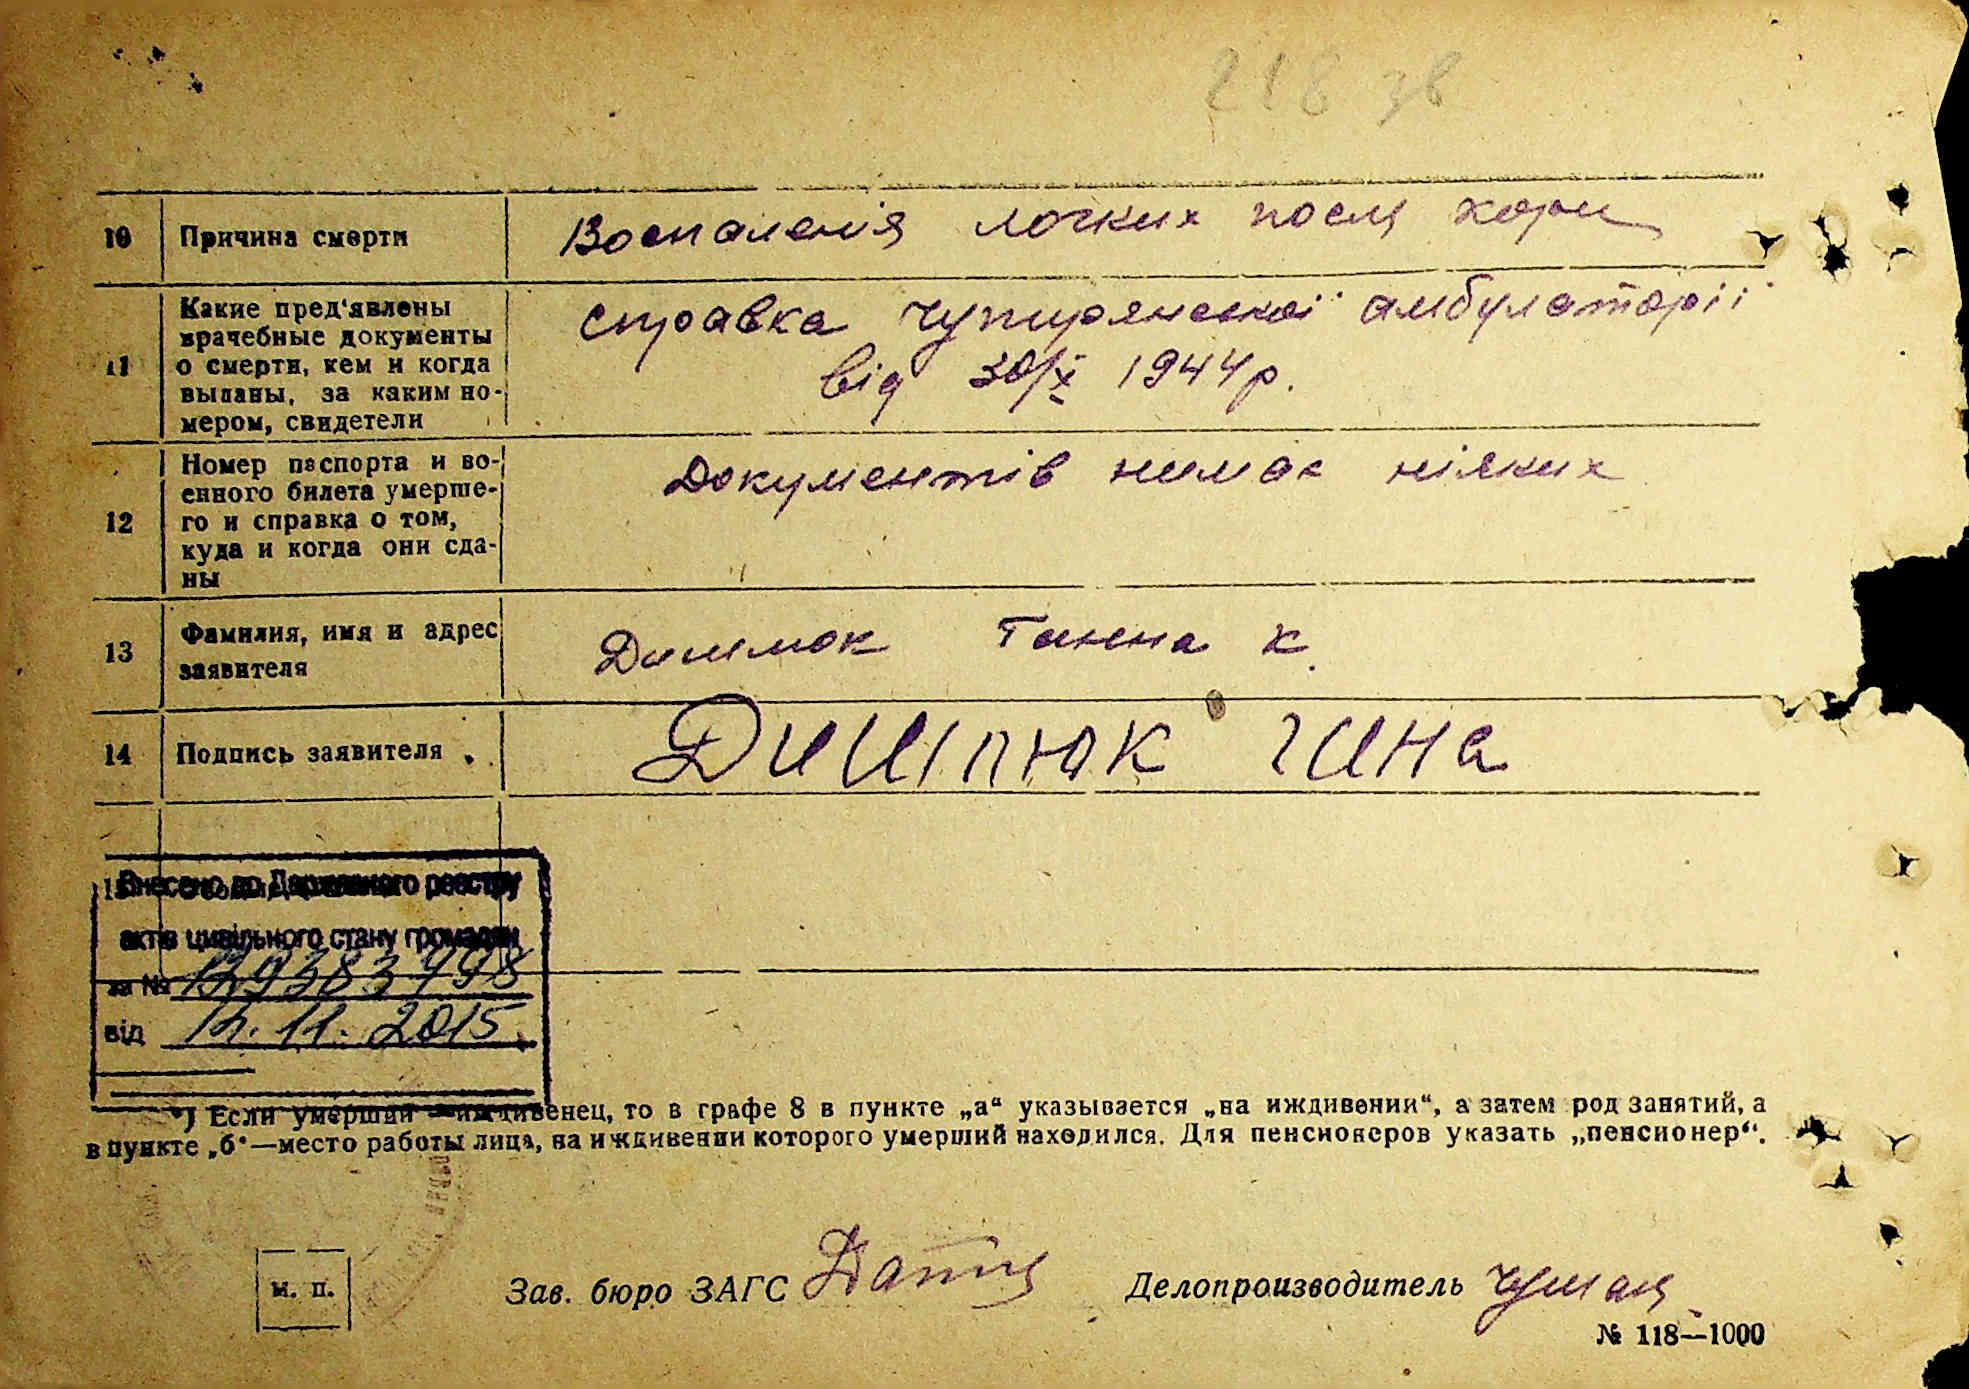 218 зв
10 Причина смерти Воспаленія логких посля кори
11 Какие пред'явлены
врачебные документы
о смерти, кем и когда
выданы, за каким но-
мером, свидетели
справка амбулаторії
від 30/X 1944 р.
12 Номер паспорта и во-
енного билета умерше-
го и справка о том,
куда и когда они сда-
ны
Документів нимає ніяких
13 Фамилия, имя и адрес
заявителя
Ганна К.
14 Подпись заявителя
15
Внесено до Державного реєстру
актів цивільного стану громадян
за №
від 12.11.2015
*) Если умерший — иждивенец, то в графе 8 в пункте „а“ указывается „на иждивении“, а затем род занятий, а
в пункте „б“—место работы лица, на иждивении которого умерший находился. Для пенсионеров указать „пенсионер“.
м. п.
Зав. бюро ЗАГС
Делопроизводитель
№ 118—1000